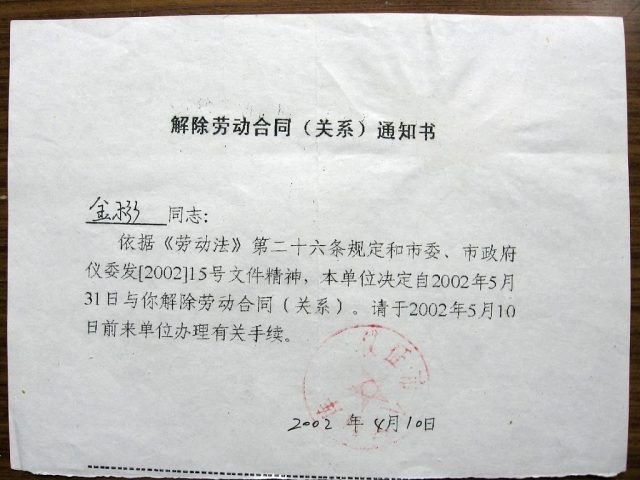 解除劳动合同（关系）通知书
同志：
依据《劳动法》第二十六条规定和市委、市政府
仪委发[2002]15号文件精神，本单位决定自2002年5月
31日与你解除劳动合同（关系）。请于2002年5月10
日前来单位办理有关手续。
2002 年 4月10日